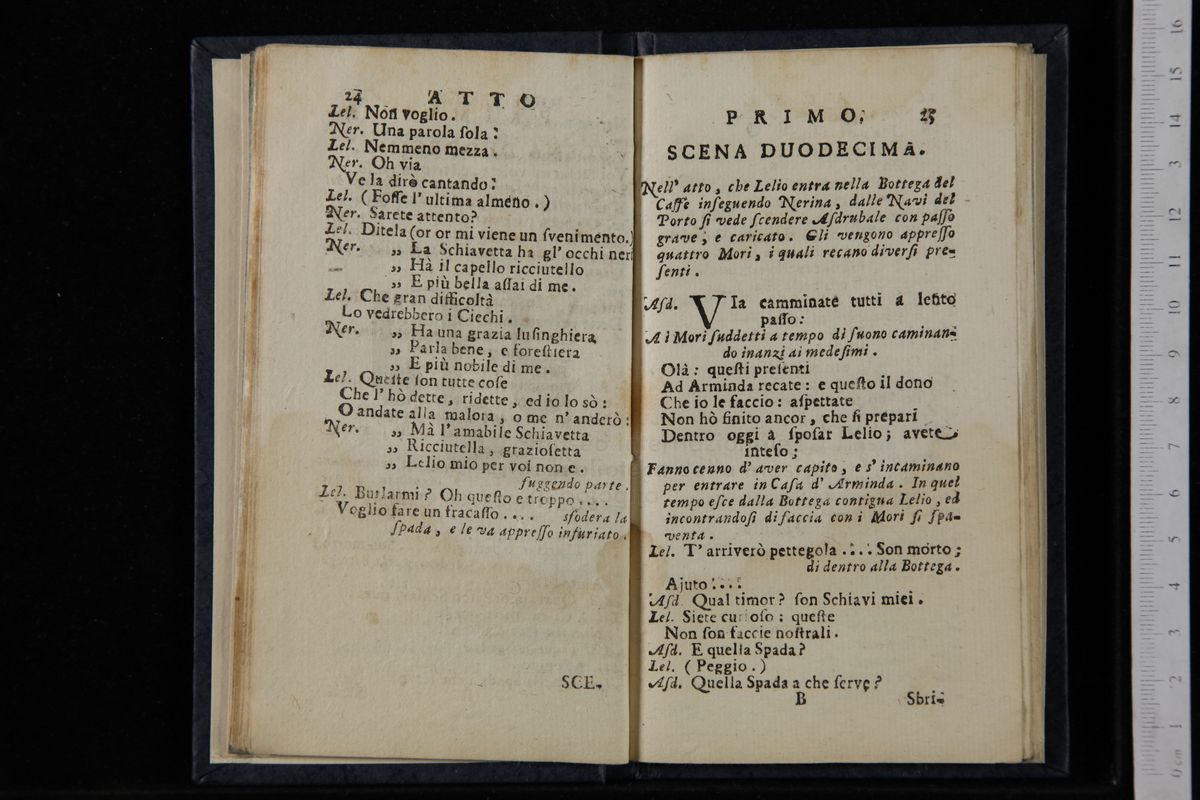 24 ATTO
Lel. Non voglio.
Ner. Una parola ſola:
Lel. Nemmeno mezza.
Ner. Oh via
Ve la dirò cantando:
Lel. (Foſſe l'ultima almeno.)
Ner. Sarete attento?
Lel. Ditela (or or mi viene un ſvenimento.)
Ner. „ La Schiavetta ha gl' occhi neri
„ Hà il capello ricciutello
„ E più bella aſſai di me.
Lel. Che gran difficoltà
Lo vedrebbero i Ciechi.
Ner. „ Ha una grazia luſinghiera
„ Parla bene, e foreſtiera
„ E più nobile di me.
Lel. Queſte ſon tutte coſe
Che l' hò dette, ridette, ed io lo sò:
O andate alla malora, o me n' anderò:
Ner. „ Mà l' amabile Schiavetta
„ Ricciutella, grazioſetta
„ Lelio mio per voi non e.
fuggendo parte.
Lel. Burlarmi? Oh queſto e troppo ....
Voglio fare un fracaſſo .... sfodera la
ſpada, e le va appreſſo infuriato.
SCE-
PRIMO. 25
SCENA DUODECIMA.
Nell' atto, che Lelio entra nella Bottega del
Caffe inſeguendo Nerina, dalle Navi del
Porto ſi vede ſcendere Aſdrubale con paſſo
grave, e caricato. Gli vengono appreſſo
quattro Mori, i quali recano diverſi pre-
ſenti.
Aſd. VIa camminate tutti a lento
paſſo:
A i Mori ſuddetti a tempo di ſuono caminan-
do inanzi ai medeſimi.
Olà: queſti preſenti
Ad Arminda recate: e queſto il dono
Che io le faccio: aſpettate
Non hò finito ancor, che ſi prepari
Dentro oggi a ſpoſar Lelio; avete
inteſo;
Fanno cenno d' aver capito, e s' incaminano
per entrare in Caſa d' Arminda. In quel
tempo eſce dalla Bottega contigua Lelio, ed
incontrandoſi di faccia con i Mori ſi ſpa-
venta.
Lel. T' arriverò pettegola .... Son morto;
di dentro alla Bottega.
Ajuto ....
Aſd. Qual timor? ſon Schiavi miei.
Lel. Siete curioſo: queſte
Non ſon faccie noſtrali.
Aſd. E quella Spada?
Lel. (Peggio.)
Aſd. Quella Spada a che ſerve?
B Sbri-
16
15
14
13
12
11
10
9
8
7
6
5
4
3
2
1
0 cm